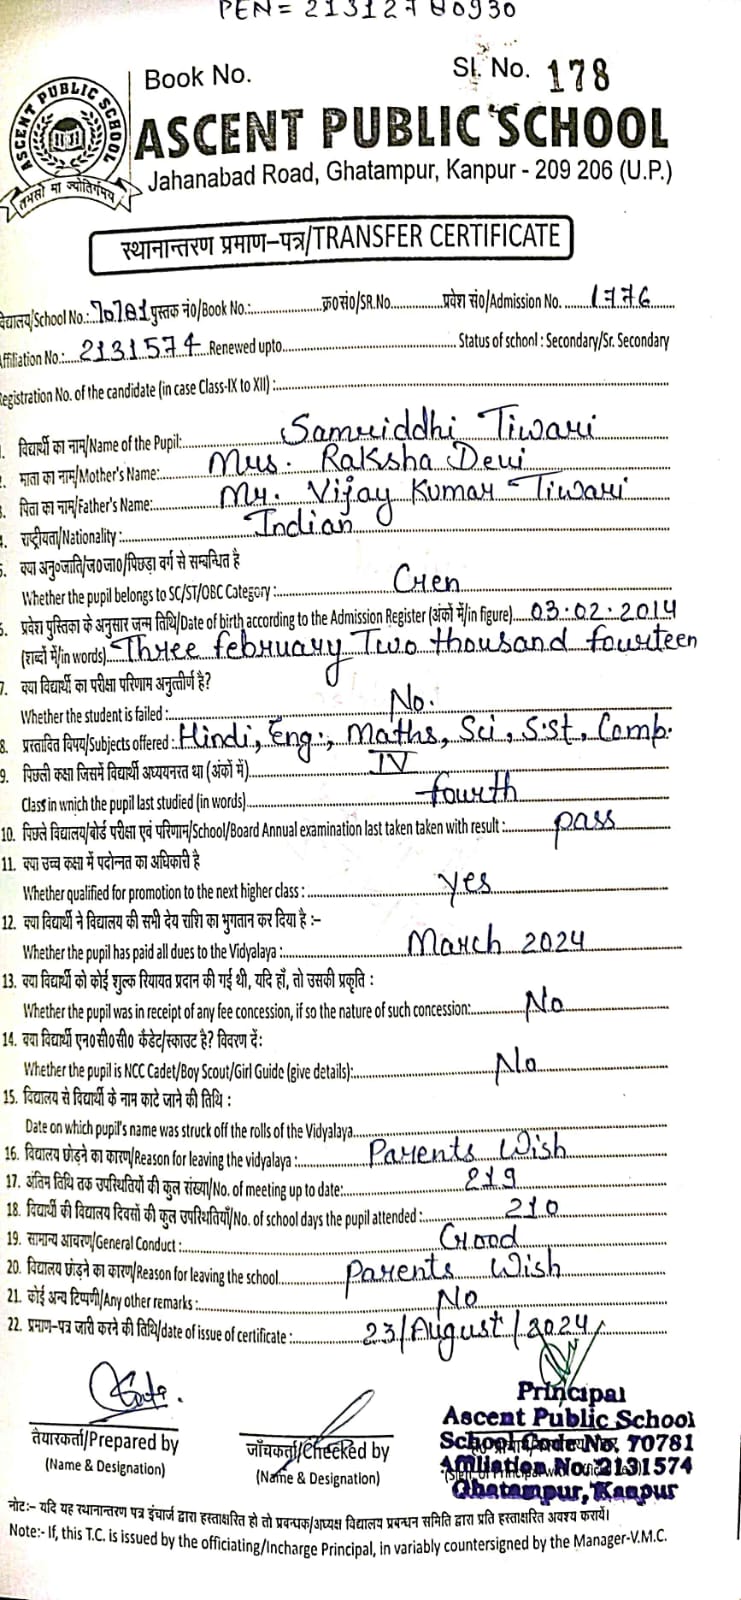 PEN = 21312780930
Book No. Sl. No. 178
ASCENT PUBLIC SCHOOL
तमसो मा ज्योतिर्गमय
ASCENT PUBLIC SCHOOL
Jahanabad Road, Ghatampur, Kanpur - 209 206 (U.P.)
स्थानान्तरण प्रमाण-पत्र/TRANSFER CERTIFICATE
विद्यालय/School No.: 70781 पुस्तक नं0/Book No.: क्र0सं0/SR.No. प्रवेश सं0/Admission No. 1776
Affiliation No.: 2131574 Renewed upto Status of school : Secondary/Sr. Secondary
Registration No. of the candidate (in case Class-IX to XII) :
1. विद्यार्थी का नाम/Name of the Pupil: Samriddhi Tiwari
2. माता का नाम/Mother's Name: Mrs. Raksha Devi
3. पिता का नाम/Father's Name: Mr. Vijay Kumar Tiwari
4. राष्ट्रीयता/Nationality : Indian
5. क्या अनु०जाति/ज०जा०/पिछड़ा वर्ग से सम्बन्धित है
Whether the pupil belongs to SC/ST/OBC Category : Gen
6. प्रवेश पुस्तिका के अनुसार जन्म तिथि/Date of birth according to the Admission Register (अंकों में/in figure) 03.02.2014
(शब्दों में/in words) Three february Two thousand fourteen
7. क्या विद्यार्थी का परीक्षा परिणाम अनुत्तीर्ण है?
Whether the student is failed : No.
8. प्रस्तावित विषय/Subjects offered : Hindi, Eng., Maths, Sci, S.st, Comp.
9. पिछली कक्षा जिसमें विद्यार्थी अध्ययनरत था (अंकों में) IV
Class in wnich the pupil last studied (in words) fourth
10. पिछले विद्यालय/बोर्ड परीक्षा एवं परिणाम/School/Board Annual examination last taken taken with result : pass
11. क्या उच्च कक्षा में पदोन्नत का अधिकारी है
Whether qualified for promotion to the next higher class : yes
12. क्या विद्यार्थी ने विद्यालय की सभी देय राशि का भुगतान कर दिया है :-
Whether the pupil has paid all dues to the Vidyalaya : March 2024
13. क्या विद्यार्थी को कोई शुल्क रियायत प्रदान की गई थी, यदि हाँ, तो उसकी प्रकृति :
Whether the pupil was in receipt of any fee concession, if so the nature of such concession: No
14. क्या विद्यार्थी एन०सी०सी० कैडेट/स्काउट है? विवरण दें:
Whether the pupil is NCC Cadet/Boy Scout/Girl Guide (give details): No
15. विद्यालय से विद्यार्थी के नाम काटे जाने की तिथि :
Date on which pupil's name was struck off the rolls of the Vidyalaya
16. विद्यालय छोड़ने का कारण/Reason for leaving the vidyalaya : Parents Wish
17. अंतिम तिथि तक उपस्थितियों की कुल संख्या/No. of meeting up to date: 219
18. विद्यार्थी की विद्यालय दिवसों की कुल उपस्थितियाँ/No. of school days the pupil attended : 210
19. सामान्य आचरण/General Conduct : Good
20. विद्यालय छोड़ने का कारण/Reason for leaving the school Parents Wish
21. कोई अन्य टिप्पणी/Any other remarks : No
22. प्रमाण-पत्र जारी करने की तिथि/date of issue of certificate : 23/August/2024
Principal
Ascent Public School
School Code No. 70781
Affiliation No. 2131574
Ghatampur, Kanpur
तैयारकर्ता/Prepared by जाँचकर्ता/Checked by
(Name & Designation) (Name & Designation)
नोट:- यदि यह स्थानान्तरण पत्र इंचार्ज द्वारा हस्ताक्षरित हो तो प्रबन्धक/अध्यक्ष विद्यालय प्रबन्धन समिति द्वारा प्रति हस्ताक्षरित अवश्य करायें।
Note:- If, this T.C. is issued by the officiating/Incharge Principal, in variably countersigned by the Manager-V.M.C.